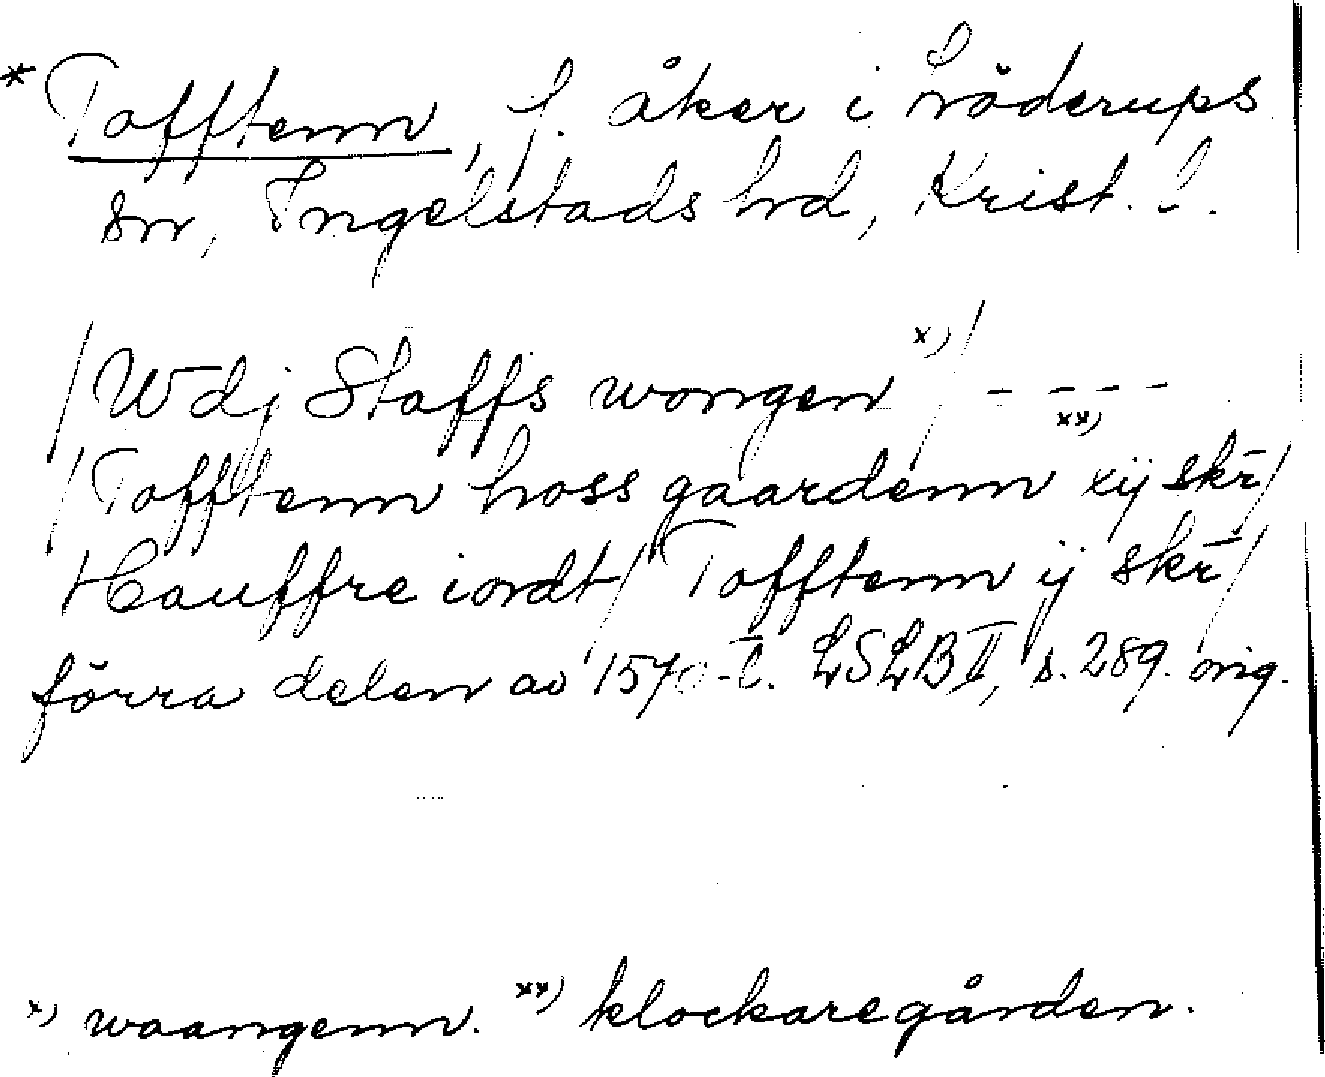 * Tofftenn, f. åker i Löderups
sn, Ingelstads hrd, Krist. l.
/Wdj Staffs wongen x)/ - - - -
/Tofftenn hoss gaardenn xx) xij skr̄/
Hauffre iordt/ Tofftenn ij skr̄/
förra delen av 1570-t. LSLB II, s. 289. orig.
x) waangenn. xx) klockaregården.